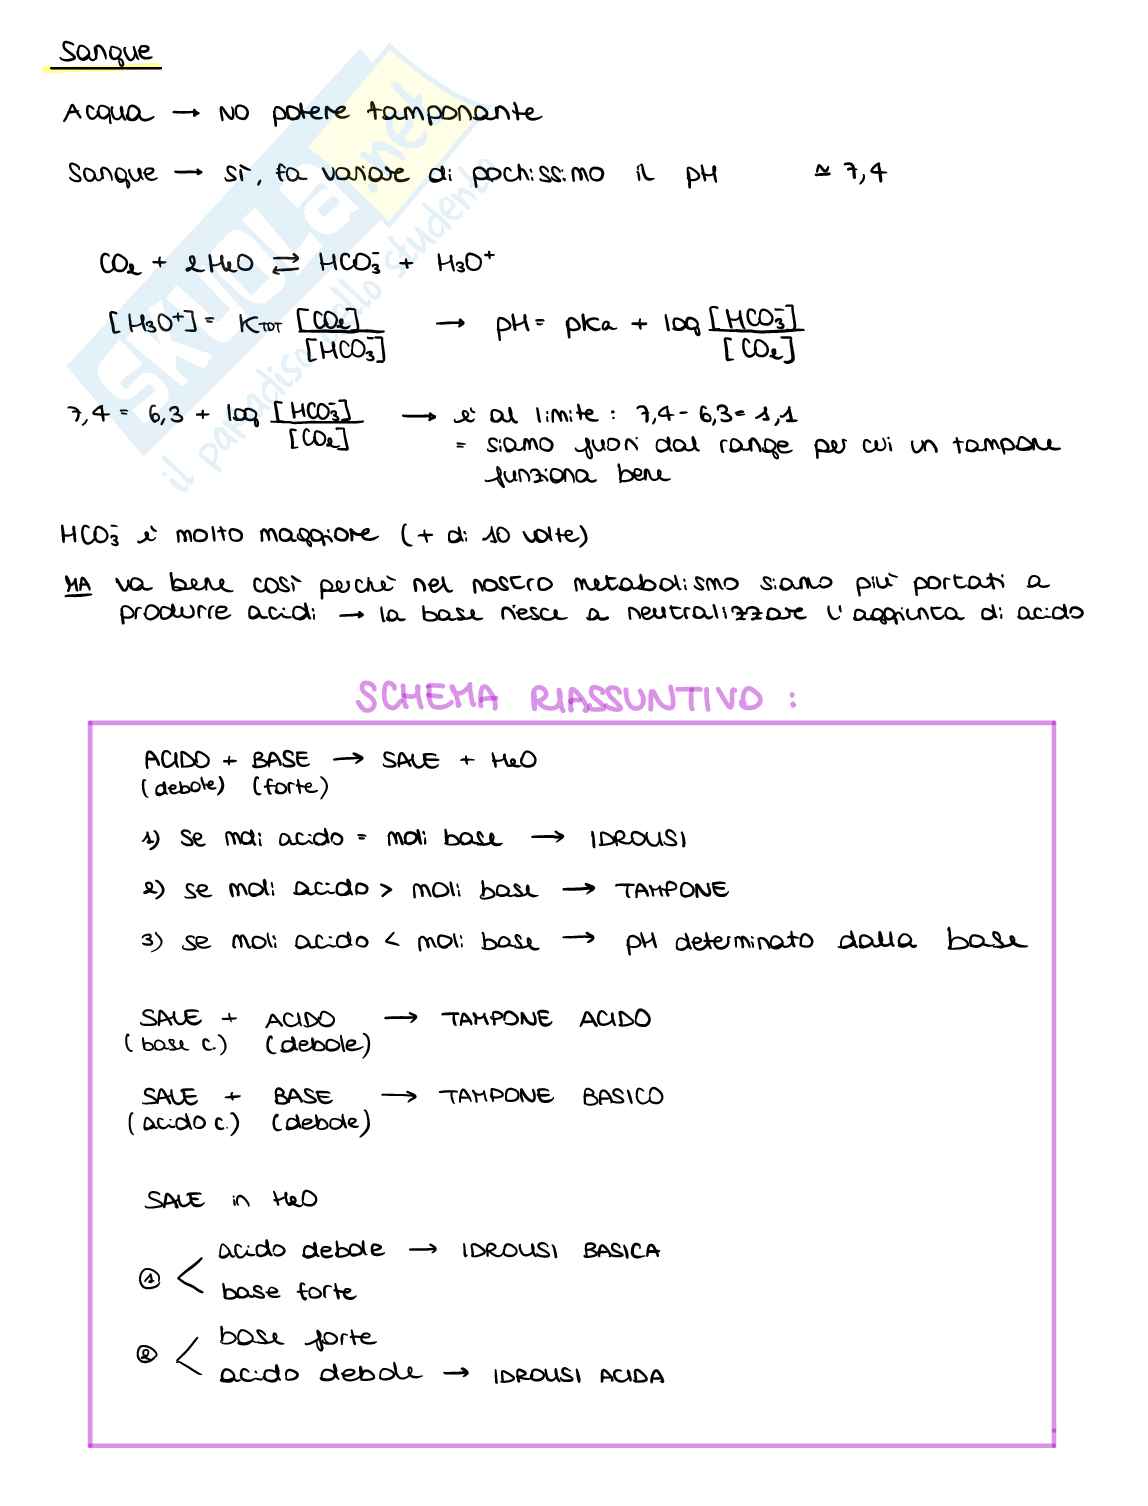 Sanque
Acqua → NO potere tamponante
Sanque → sì, fa variare di pochissimo il pH ≃ 7,4
CO₂ + 2H₂O ⇄ HCO₃⁻ + H₃O⁺
[H₃O⁺] = K_TOT [CO₂]/[HCO₃⁻] → pH = pKa + log [HCO₃⁻]/[CO₂]
7,4 = 6,3 + log [HCO₃⁻]/[CO₂] → è al limite : 7,4 - 6,3 = 1,1
= siamo fuori dal range per cui un tampone
funziona bene
HCO₃⁻ è molto maggiore (+ di 10 volte)
MA va bene così perchè nel nostro metabolismo siamo più portati a
produrre acidi → la base riesce a neutralizzare l'aggiunta di acido
SCHEMA RIASSUNTIVO :
ACIDO + BASE → SALE + H₂O
(debole) (forte)
1) Se moli acido = moli base → IDROLISI
2) se moli acido > moli base → TAMPONE
3) se moli acido < moli base → pH determinato dalla base
SALE + ACIDO → TAMPONE ACIDO
(base c.) (debole)
SALE + BASE → TAMPONE BASICO
(acido c.) (debole)
SALE in H₂O
① < acido debole → IDROLISI BASICA
base forte
② < base forte
acido debole → IDROLISI ACIDA
SKUOLA.net
il paradiso dello studente